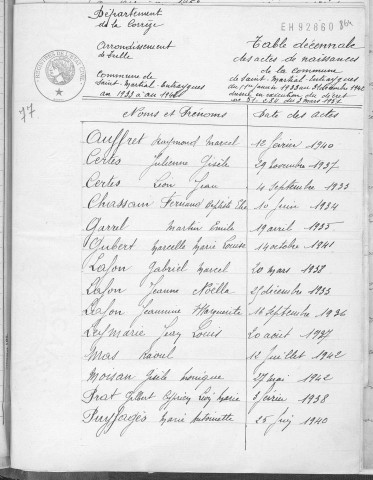 Département
de la Corrèze
EH92860
Arrondissement
de Tulle
Commune de
Saint-Martial-Entraygues
an 1933 à an 1942
Table décennale
des actes de naissances
de la commune
de Saint-Martial-Entraygues
du 1er janvier 1933 au 31 décembre 1942
77
Noms et Prénoms
Date des actes
Auffret Raymond Marcel 12 février 1940
Certes Julienne Gisèle 29 novembre 1937
Certes Léon Jean 4 septembre 1933
Chassain Fernand 10 juin 1934
Garrel Martin Emile 19 avril 1935
Gubert Marcelle Marie Louise 14 octobre 1941
Lafon Gabriel Marcel 20 mars 1938
Lafon Jeanne Noëlla 25 décembre 1933
Lafon Jeannine Marguerite 16 septembre 1936
Leymarie Jean Louis 20 août 1937
Mas Raoul 12 juillet 1942
Moisan Gisèle Monique 27 mai 1942
Prat Gilbert Marie 3 février 1938
Puyfagès Marie Antoinette 25 juin 1940